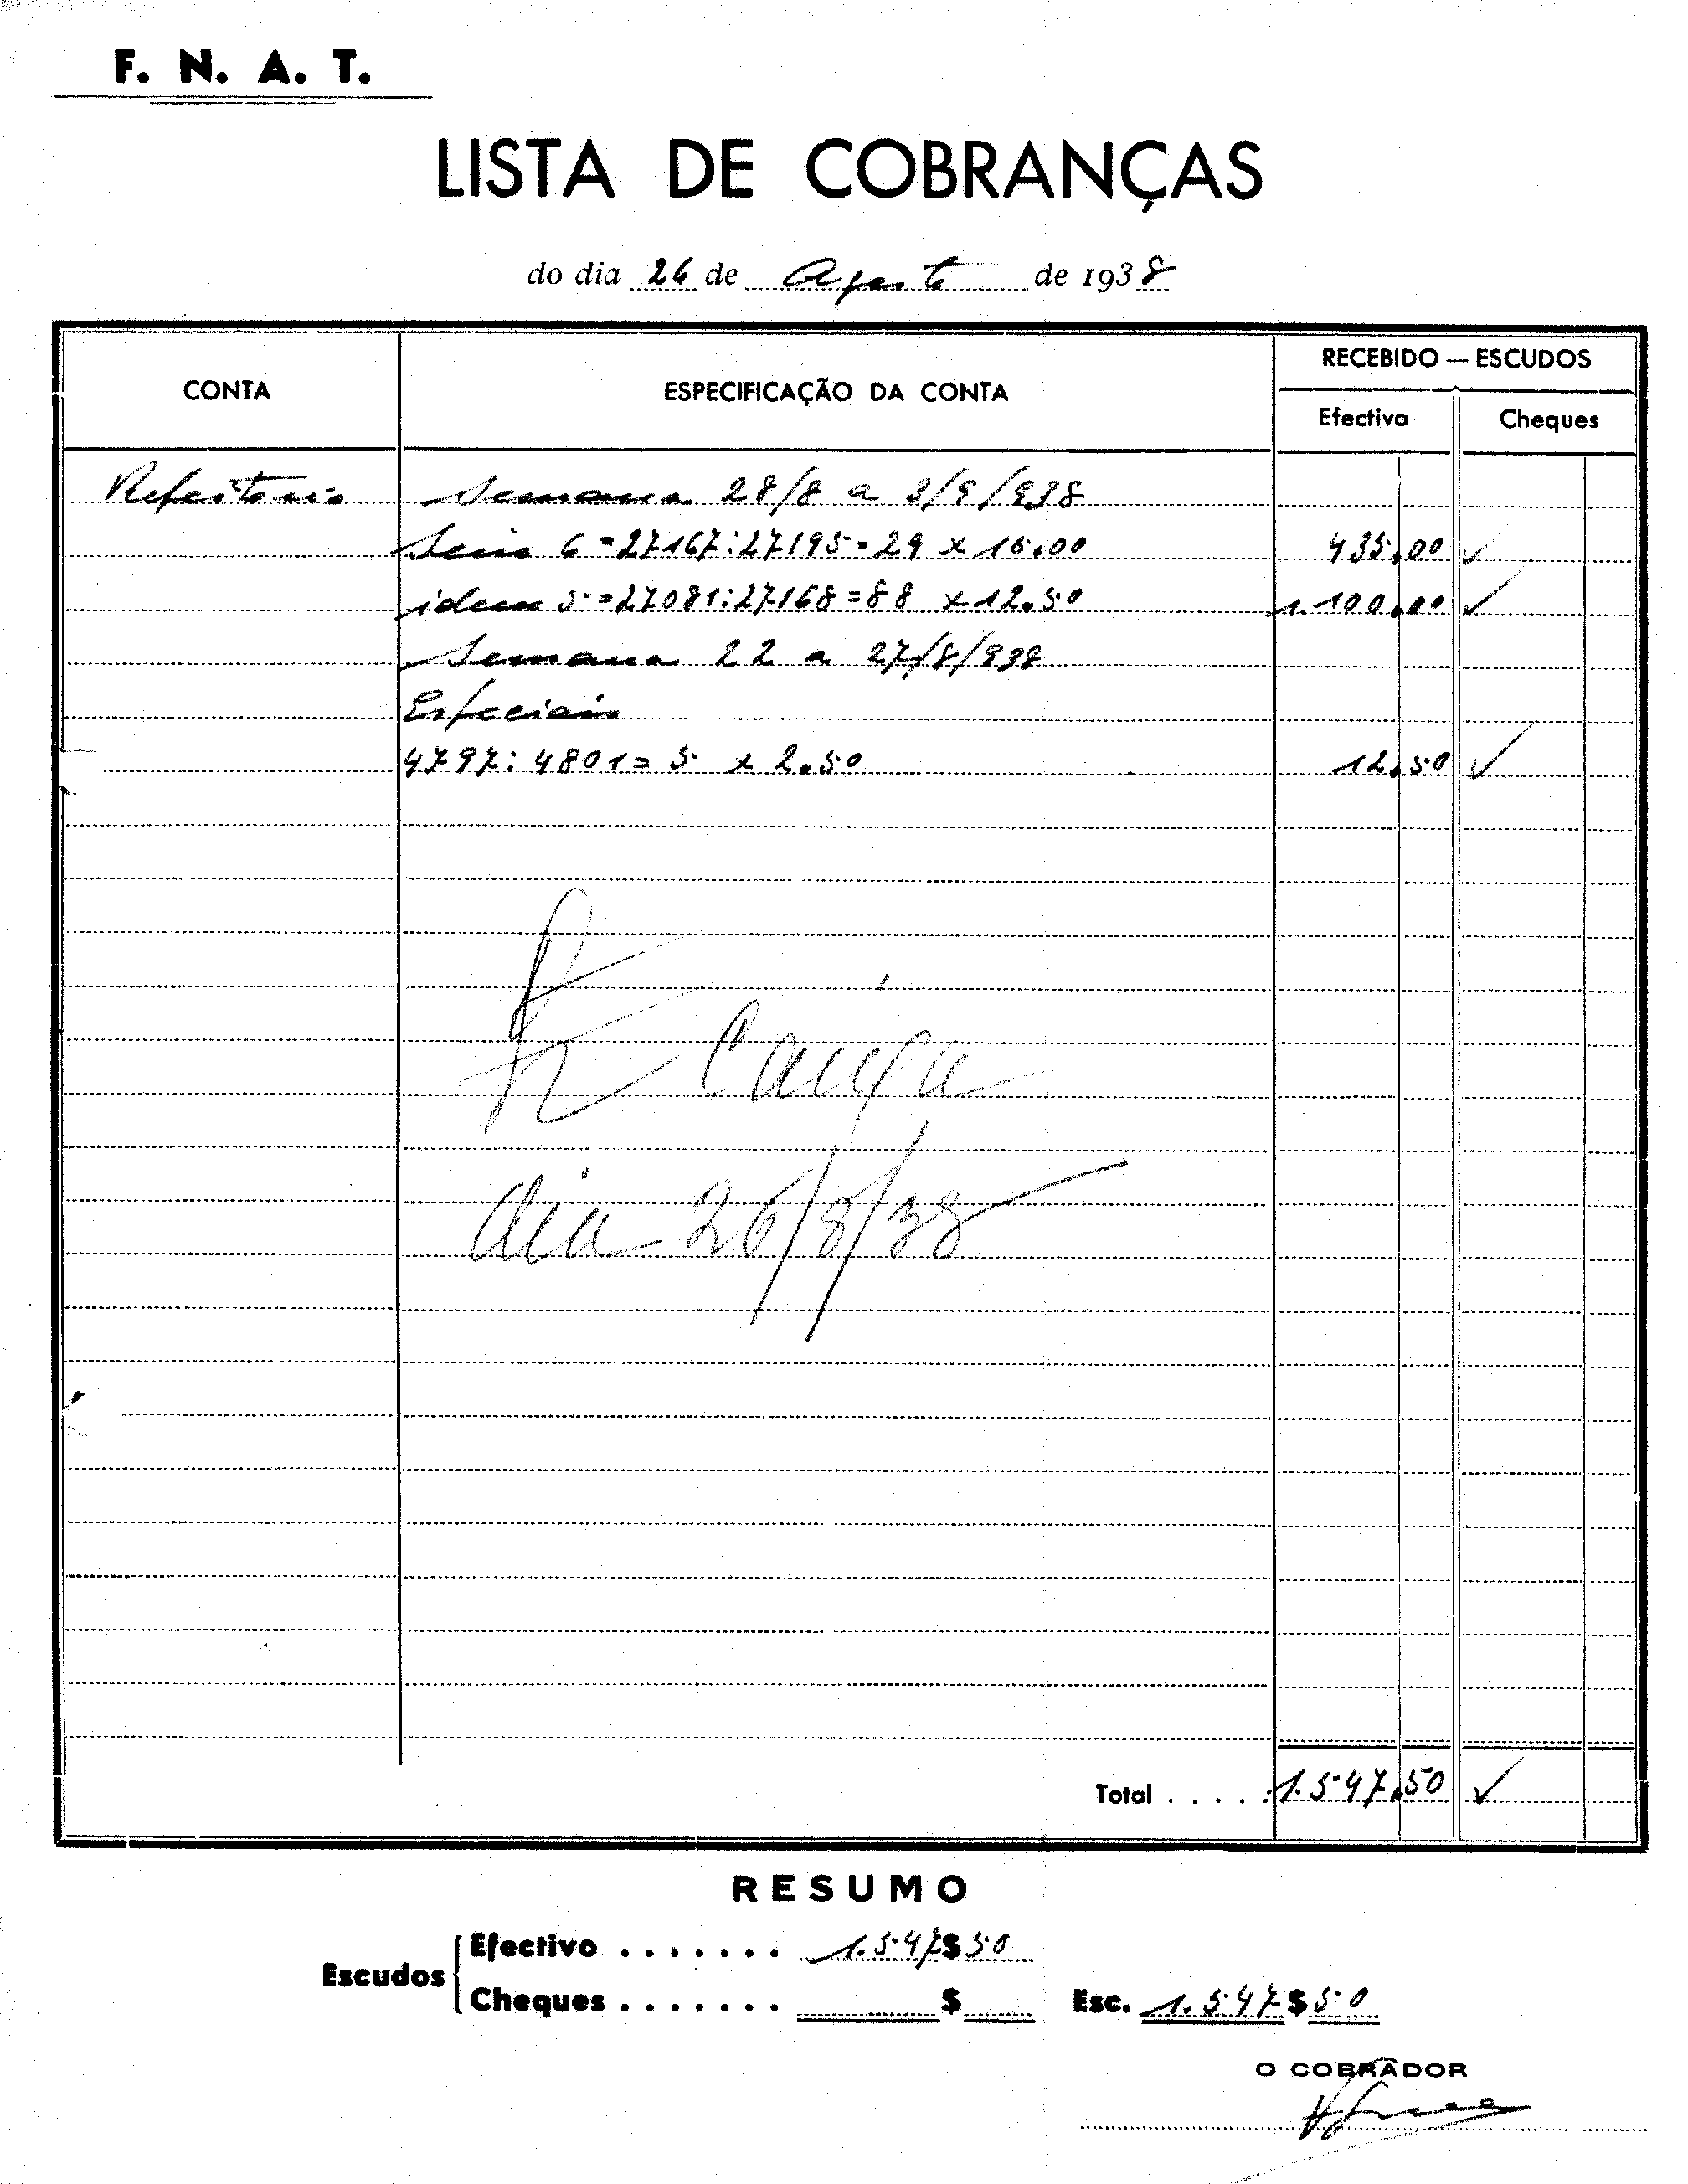 F. N. A. T.
LISTA DE COBRANÇAS
do dia 26 de Agosto de 1938
CONTA ESPECIFICAÇÃO DA CONTA RECEBIDO — ESCUDOS
Efectivo Cheques
Refeitorio Semana 28/8 a 3/9/938
Serie 6 = 27167:27195 = 29 x 15.00 435.00
idem 5 = 27081:27168 = 88 x 12.50 1.100.00
Semana 22 a 27/8/938
Especiais
4797:4801 = 5 x 2.50 12.50
Caixa
dia 26/8/38
Total . . . . . 1.547.50
RESUMO
Escudos
Efectivo . . . . . . . 1.547$50
Cheques . . . . . . . $ Esc. 1.547$50
O COBRADOR